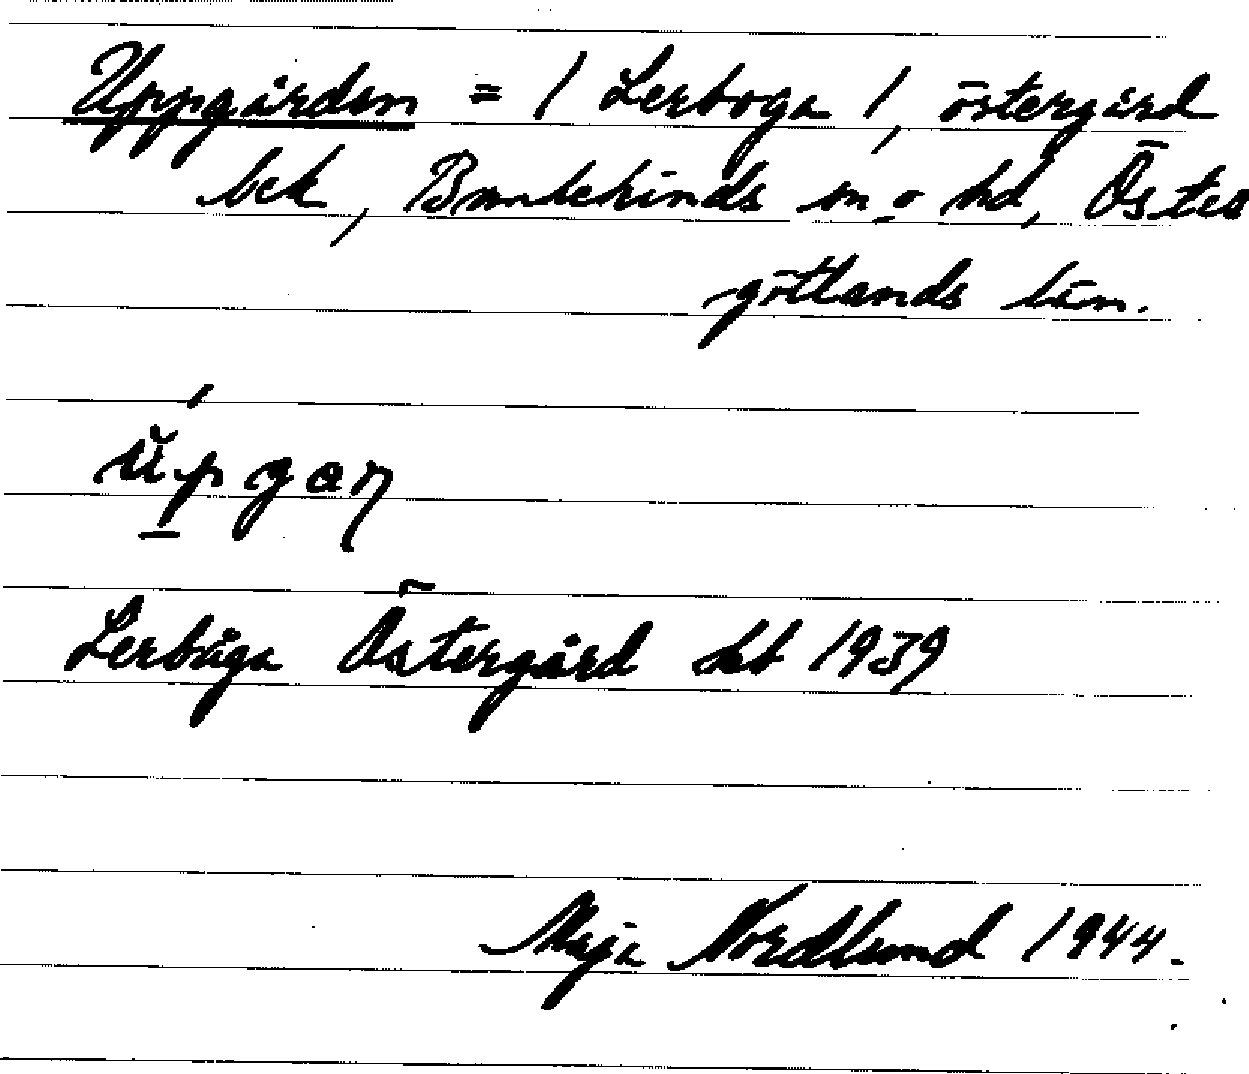 Uppgården = / Lerboga /, östergård
bek, Bankekinds sn o hd, Öster
götlands län.
Lerbåga Östergård jeb 1939
Maja Nordlund 1944.